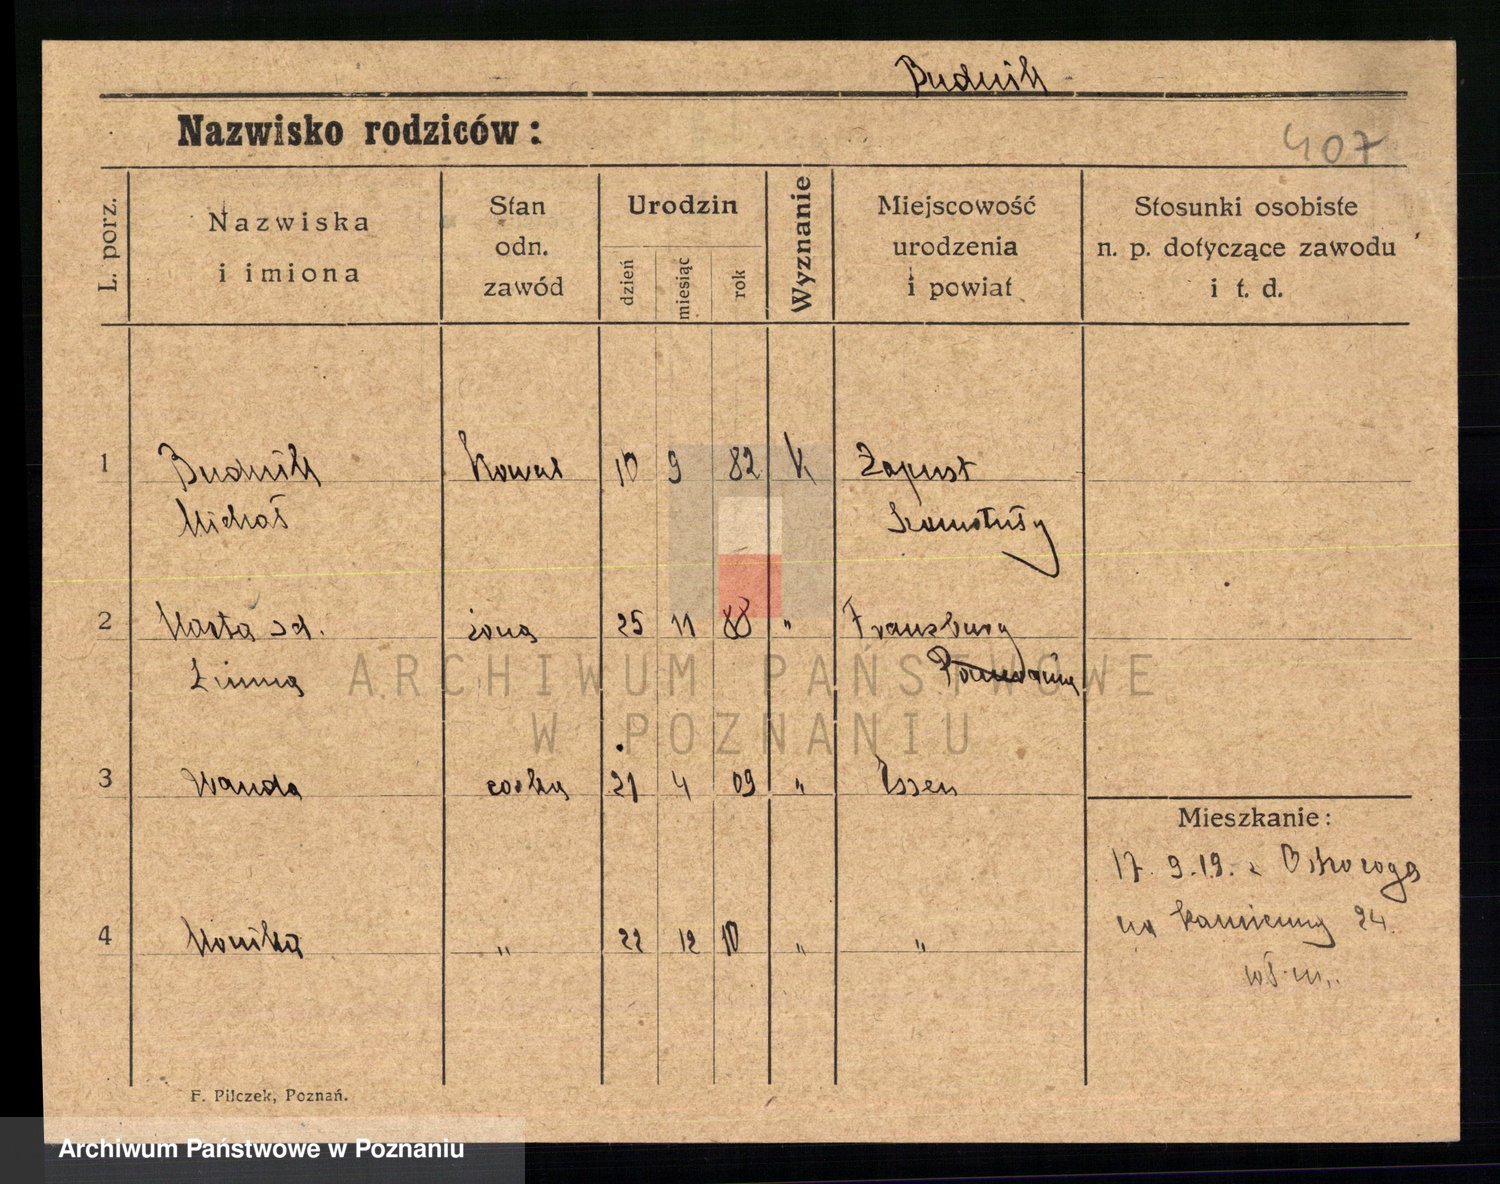 Budnik
Nazwisko rodziców:
407
L. porz.
Nazwiska
i imiona
Stan
odn.
zawód
Urodzin
dzień
miesiąc
rok
Wyznanie
Miejscowość
urodzenia
i powiat
Stosunki osobiste
n. p. dotyczące zawodu
i t. d.
1 Budnik Kowal 10 9 82 K Zapust
Michał Szamotuły
2 Marta zd. żona 25 11 88 " Franzburg
Zimna
3 Wanda córka 21 4 09 " Essen
Mieszkanie:
17. 9. 19. z Ostroroga
4 Monika " 22 12 10 " "
na Kamienny 24
wł. m.
F. Pilczek, Poznań.
ARCHIWUM PAŃSTWOWE
W POZNANIU
Archiwum Państwowe w Poznaniu